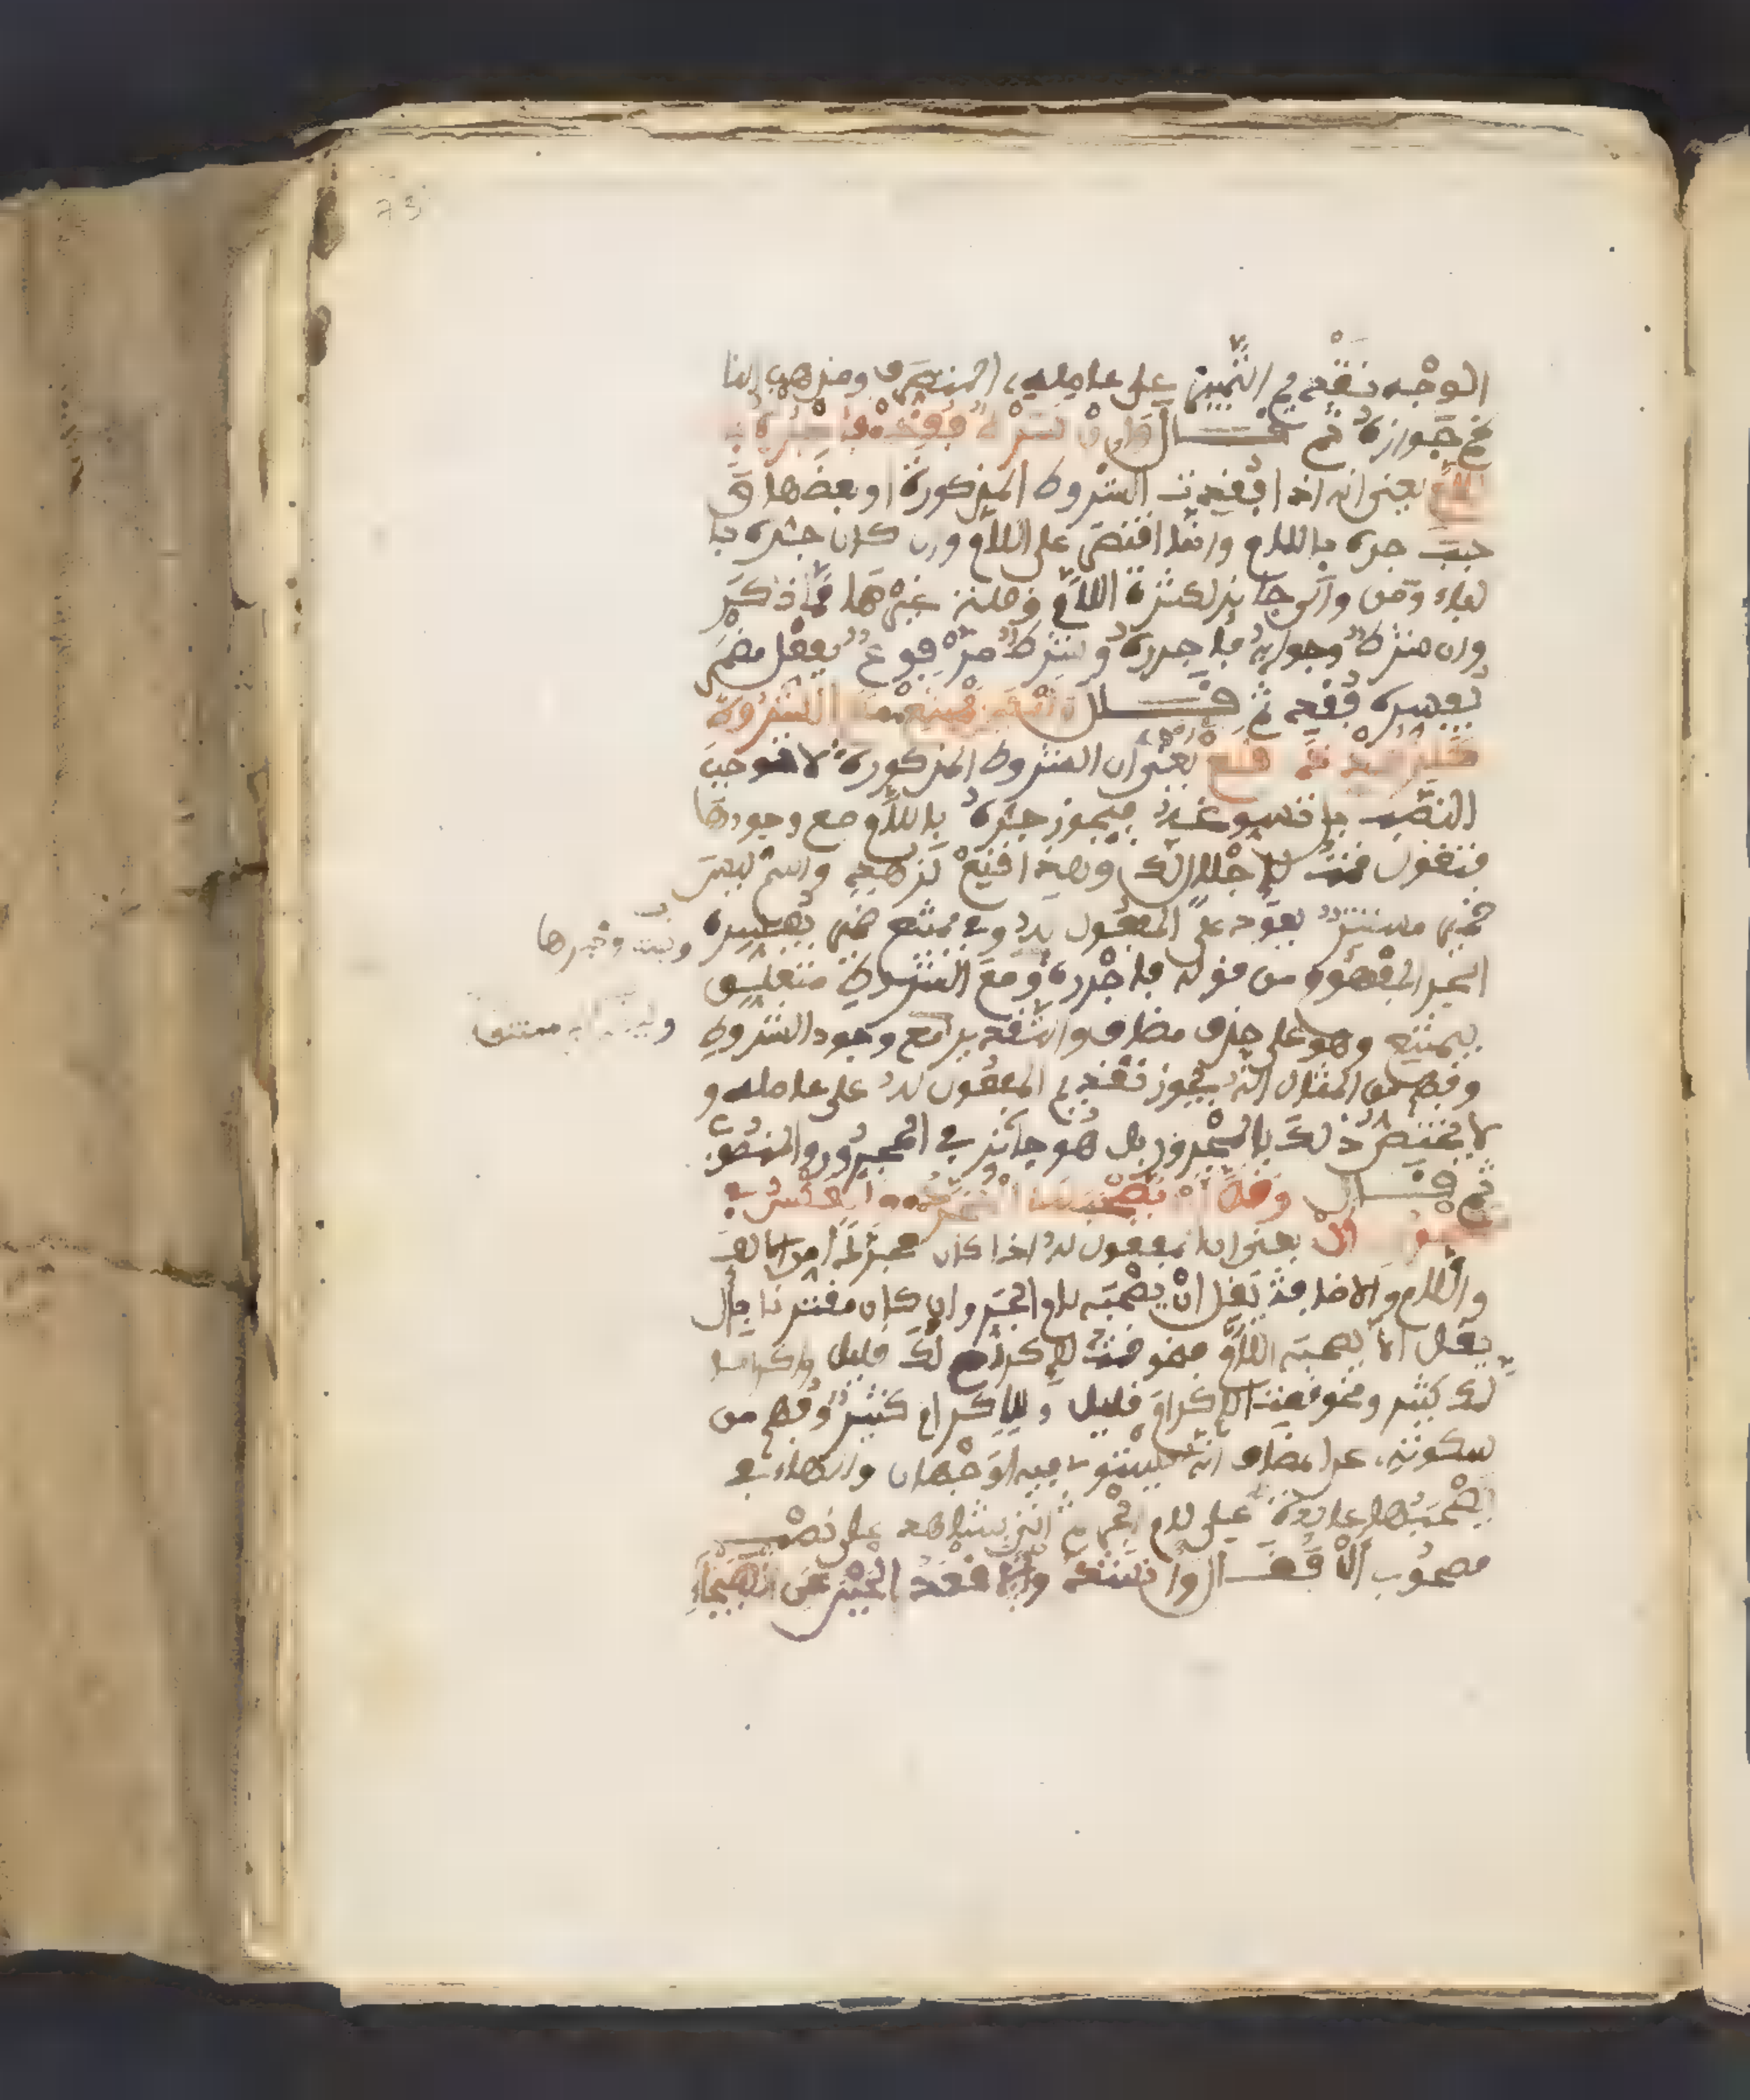 الوجه تقديم التمييز على عامله المتصرف ومذهب النا
ظم جوازه ثم قال وان شرط فقد فاجرره با
للام يعني انه اذا فقدت الشروط المذكورة او بعضها و
جب جره باللام وانما اقتصر على اللام وان كان جره با
لباء ومن وفي جائز لكثرة اللام وقلة غيرها مما ذكر
وان شرط وجوابه فاجرره وشرط مرفوع بفعل مضمر
يفسره فقد ثم قال وليس يمتنع مع الشروط
كلزهد ذا قنع يعني ان الشروط المذكورة لا توجب
النصب بل تسوغه فيجوز جره باللام مع وجودها
فتقول قمت لاجلالك وهذا قنع لزهد واسم ليس
ضمير مستتر يعود على المفعول له وفي يمتنع ضمير يفسره
الجر المفهوم من قوله فاجرره ومع الشروط متعلق
بيمتنع وهو على حذف مضاف والتقدير مع وجود الشروط
وفهم من المثال انه يجوز تقديم المفعول له على عامله و
لا يختص ذلك بالمجرور بل هو جائز في المجرور والمنصوب
ثم قال وقل ان يصحبها المجرد والعكس في
مصحوب ال يعني ان المفعول له اذا كان مجردا من الالف
واللام والاضافة يقل ان يصحبه لام الجر وان كان مقترنا بال
يقل الا يصحبه اللام فنحو قمت لاكرام لك قليل واكراما
لك كثير ونحو قمت الاكرام قليل وللاكرام كثير وفهم من
سكوته عن المضاف انه يستوي فيه الوجهان والهاء في
يصحبها عائدة على لام الجر ثم اتى بشاهد على نصب
مصحوب ال فقال وانشدوا لا اقعد الجبن عن الهيجاء
وليس وخبرها